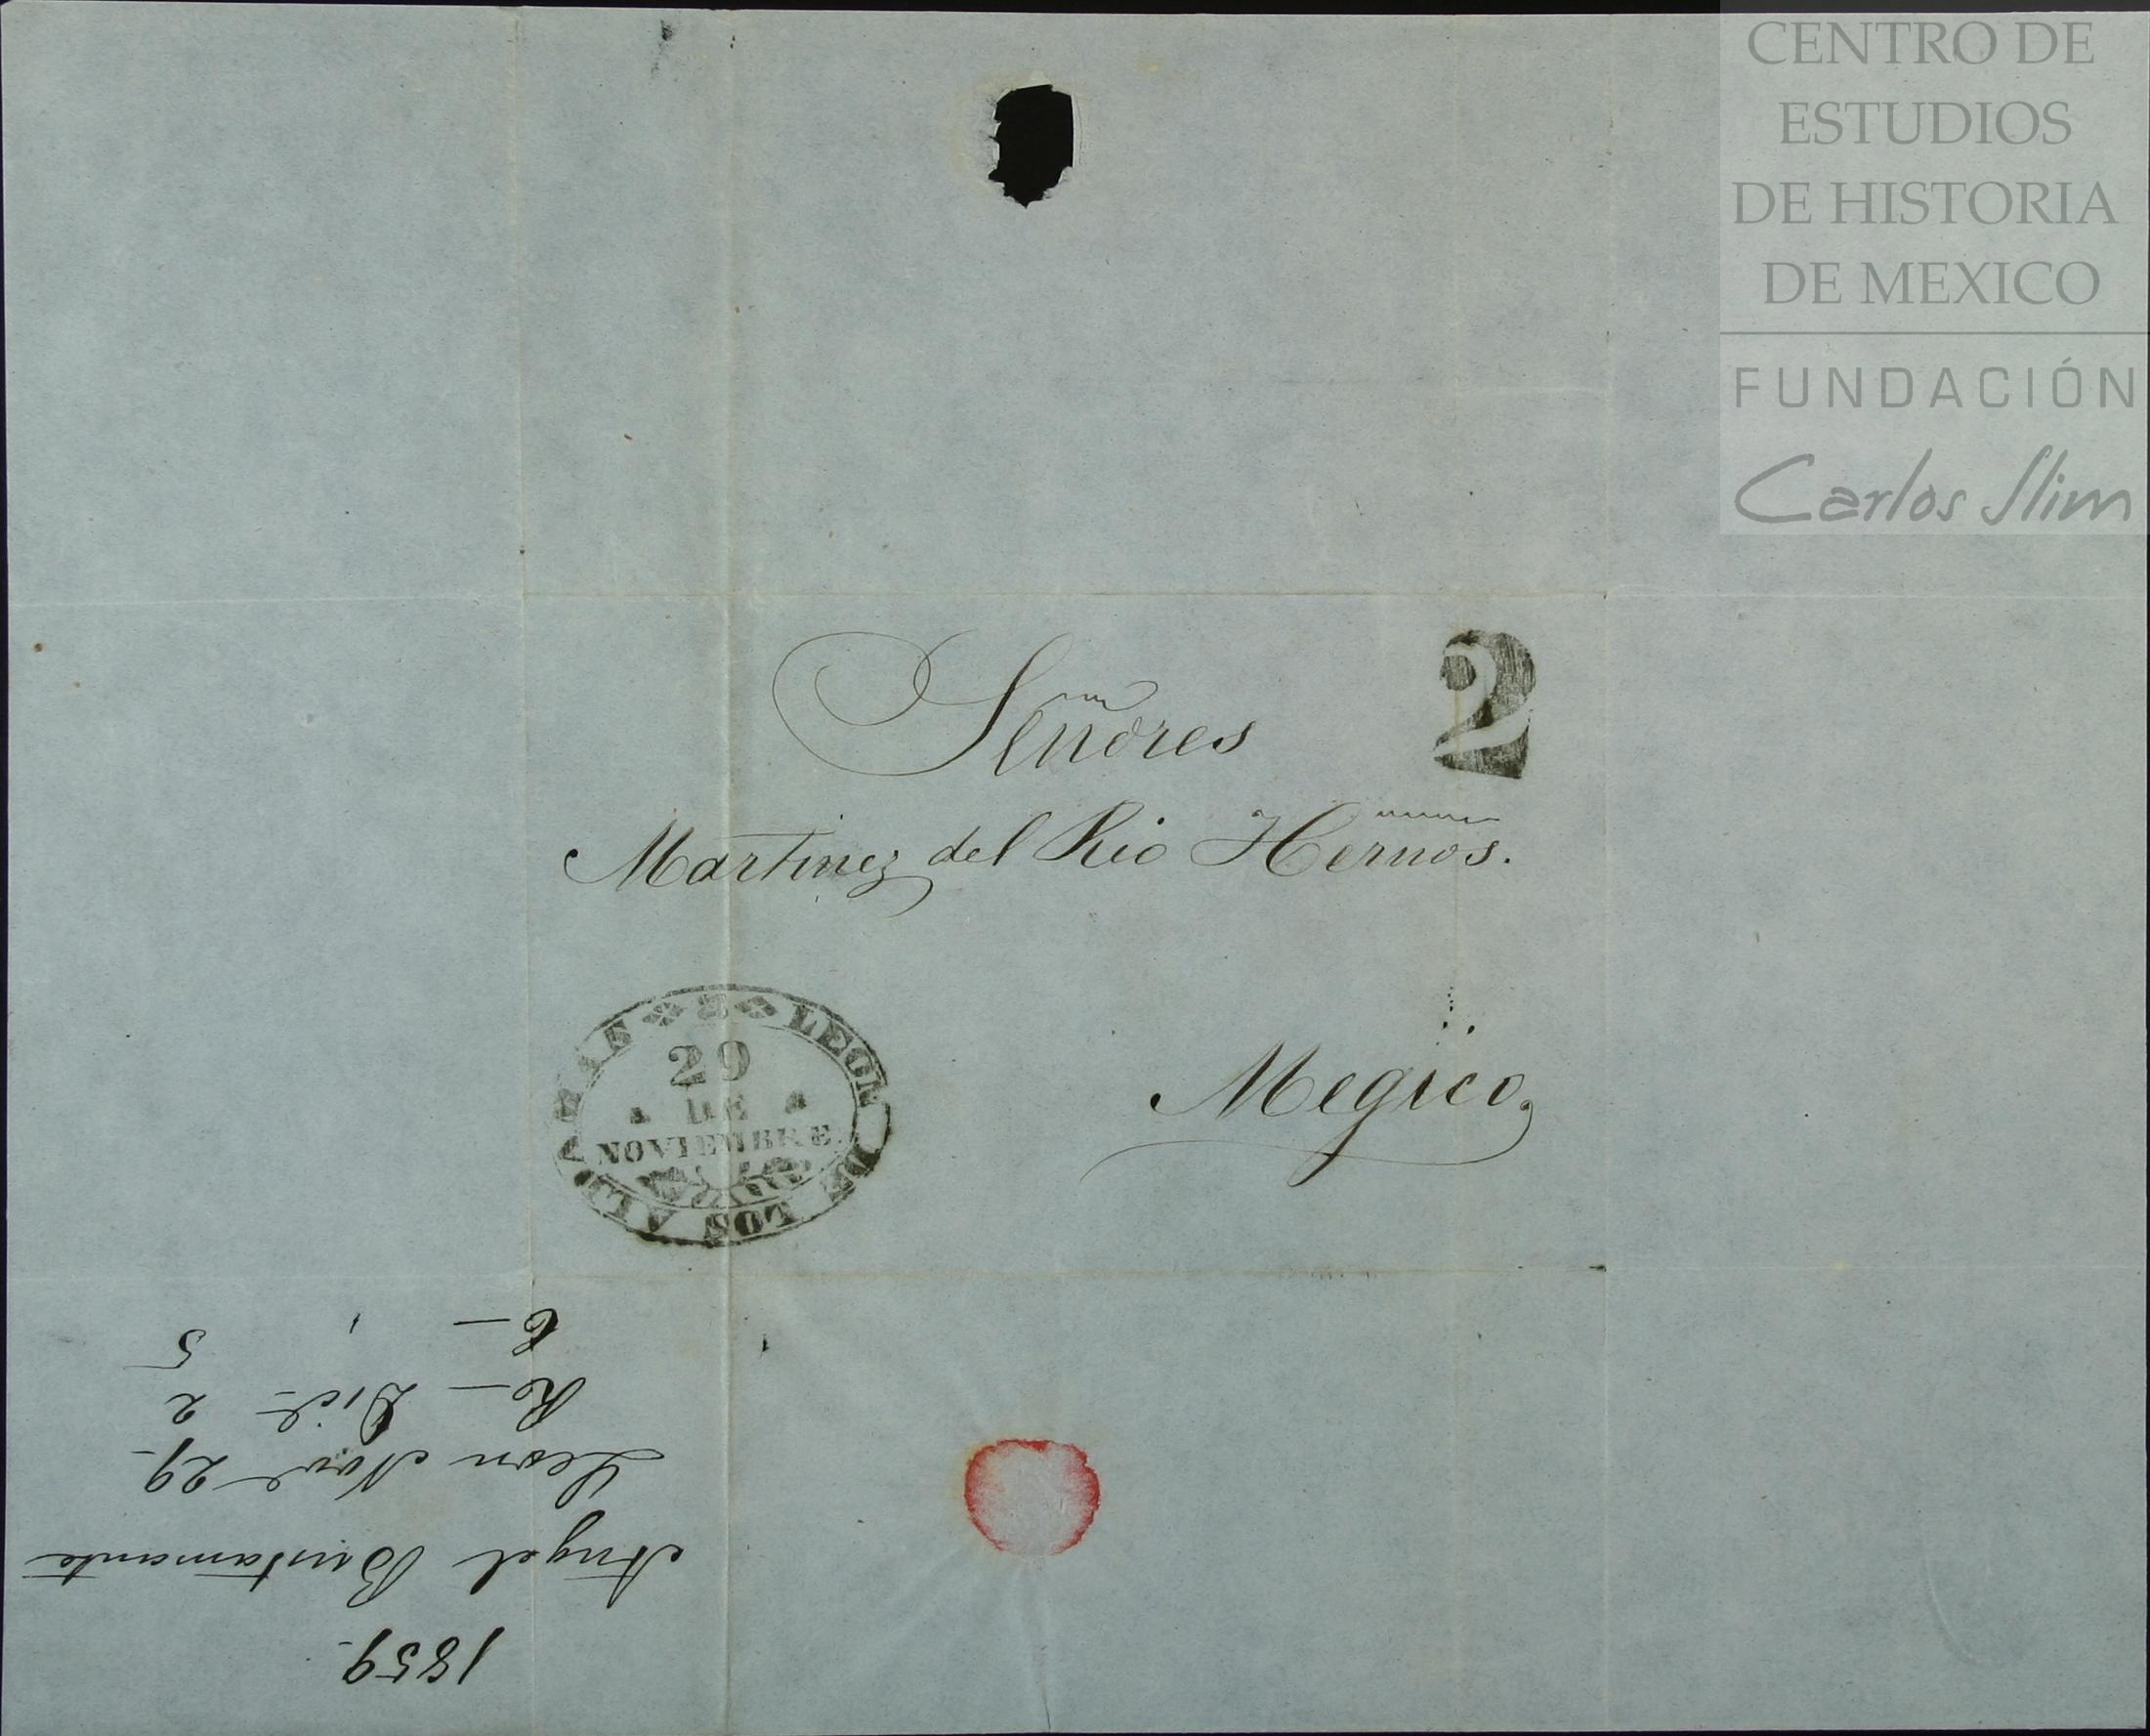 CENTRO DE
ESTUDIOS
DE HISTORIA
DE MEXICO
FUNDACIÓN
Carlos Slim
Señores
2
Martinez del Rio Hermos.
LEON DE LOS ALDAMAS
29
DE
NOVIEMBRE
Megico,
1859.
Angel Bustamante
Leon Nove 29
Ro Dice 2
C 5